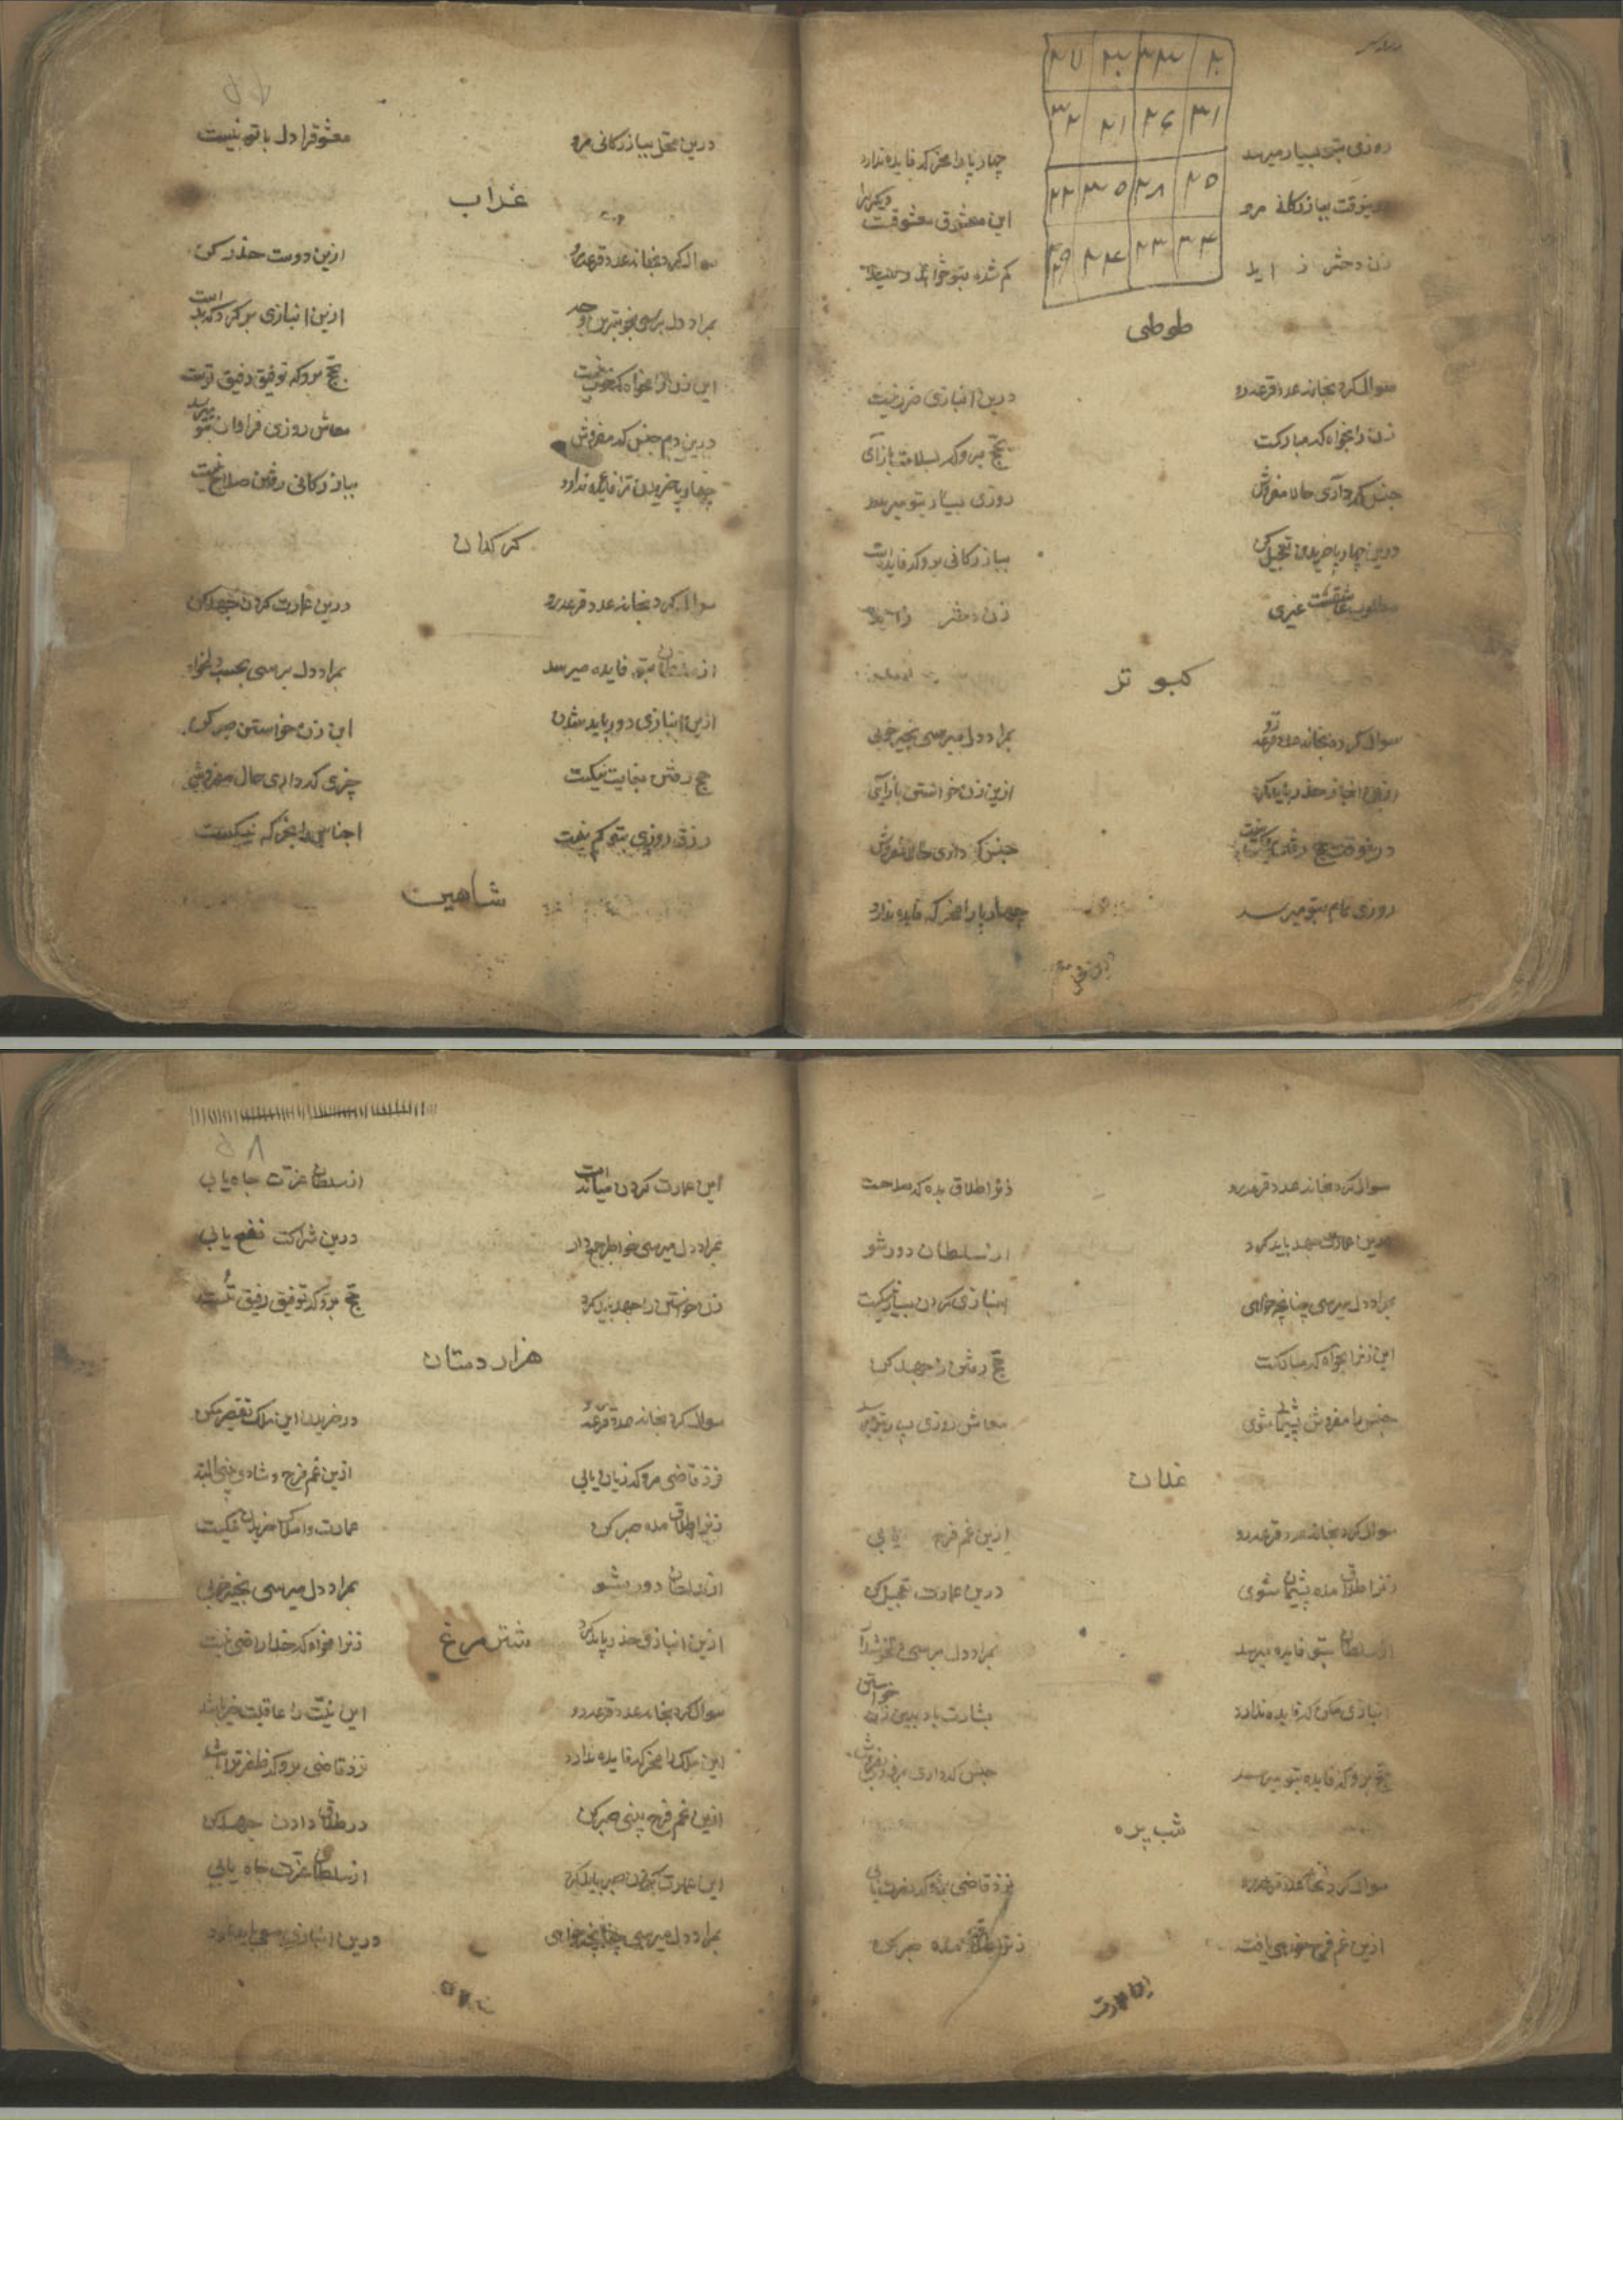 روزی بتو بسیار میرسد چهارپا را مخر که فایده ندارد
درینوقت ببازرکانی مرو این معشوق معشوقست
زن دختر زاید کم شده بتو
۲۷ ۲۲ ۳۳ ۲۰
۳۲ ۲۱ ۲۶ ۳۱
۲۲ ۳۵ ۲۸ ۲۵
۲۹ ۲۴ ۲۳ ۳۴
طوطی
سوال کرد بخانه عدد قرعه رو درین انبازی ضرر نیست
زن را بخواه که مبارکست بحج برو که بسلامت بازآی
جنس که داری حالا مفروش روزی بسیار بتو میرسد
درین چهارپا خریدن تعجیل کن ببازرکانی برو که فایده است
مطلوب عاشقست غیری زن دختر زاید
کبوتر
سوال کرد بخانه عدد قرعه رو بمراد دل میرسی بخیر خوبی
ازین انباز حذر باید کرد ازین زن خواستن بازآی
درینوقت بحج رفتن جنس که داری حالا مفروش
روزی تمام بتو میرسد چهارپا را مخر که فایده ندارد
درین محل ببازرکانی مرو معشوق را دل با تو نیست
غراب
سوال کرد بخانه عدد قرعه رو ازین دوست حذر کن
بمراد دل برسی بخوبترین وجه ازین انبازی برکرد که بد است
این زن را مخواه که خوب نیست بحج برو که توفیق رفیق تست
درین دم جنس که مفروش معاش روزی فراوان بتو میرسد
چهارپا خریدن ترا فایده ندارد ببازرکانی رفتن صلاح نیست
کرکدان
سوال کرد بخانه عدد قرعه رو درین عمارت کردن جهد کن
از سلطان بتو فایده میرسد بمراد دل برسی بحسب دلخواه
ازین انبازی دور باید شدن این زن خواستن صبر کن
حج رفتن بغایت نیکست چیزی که داری حال مفروش
رزق روزی بتو کم نیست اجناس را بخر که نیکست
شاهین
سوال کرد بخانه عدد قرعه رو زنرا طلاق بده که صلاحست
درین عمارت جهد باید کرد از سلطان دور شو
بمراد دل میرسی چنانچه خواهی انبازی کردن بسیار نیکست
این زنرا بخواه که مبارکست حج رفتن را جهد کن
جنس را مفروش پشیمان شوی معاش روزی بسیار بتو میرسد
غلان
سوال کرد بخانه عدد قرعه رو ازین غم فرح یابی
زنرا طلاق مده پشیمان شوی درین عمارت تعجیل کن
از سلطان بتو فایده میرسد بمراد دل برسی
انبازی مکن که فایده ندارد بشارت باد بدین زن خواستن
حج برو که فایده بتو میرسد جنس که داری بفروش
شب پره
سوال کرد بخانه عدد قرعه رو نزد قاضی برو که نصرت یابی
ازین غم فرح خواهی یافت زنرا طلاق مده صبر کن
این عمارت
این عمارت کردن مبارک است از سلطان عزت جاه یابی
بمراد دل میرسی خواطر جمع دار درین شراکت نفع یابی
زن خواستن را جهد باید کرد بحج برو که توفیق رفیق تست
هزاردستان
سوال کرد بخانه عدد قرعه رو در خریدن این ملک تقصیر مکن
نزد قاضی مرو که زیان یابی ازین غم فرح و شادی بینی البته
زنرا طلاق مده صبر کن عمارت و املاک خریدن نیکست
از سلطان دور شو بمراد دل میرسی بخیر خوبی
ازین انبازی حذر باید کرد زنرا مخواه که خدا راضی نیست
شترمرغ
سوال کرد بخانه عدد قرعه رو این نیت را عاقبت خیر باشد
این ملک را مخر که فایده ندارد نزد قاضی برو که ظفر ترا باشد
ازین غم فرح بینی صبر کن در طلاق دادن جهد کن
این عمارت کردن صبر باید کرد از سلطان عزت جاه یابی
بمراد دل میرسی چنانچه خواهی درین انبازی